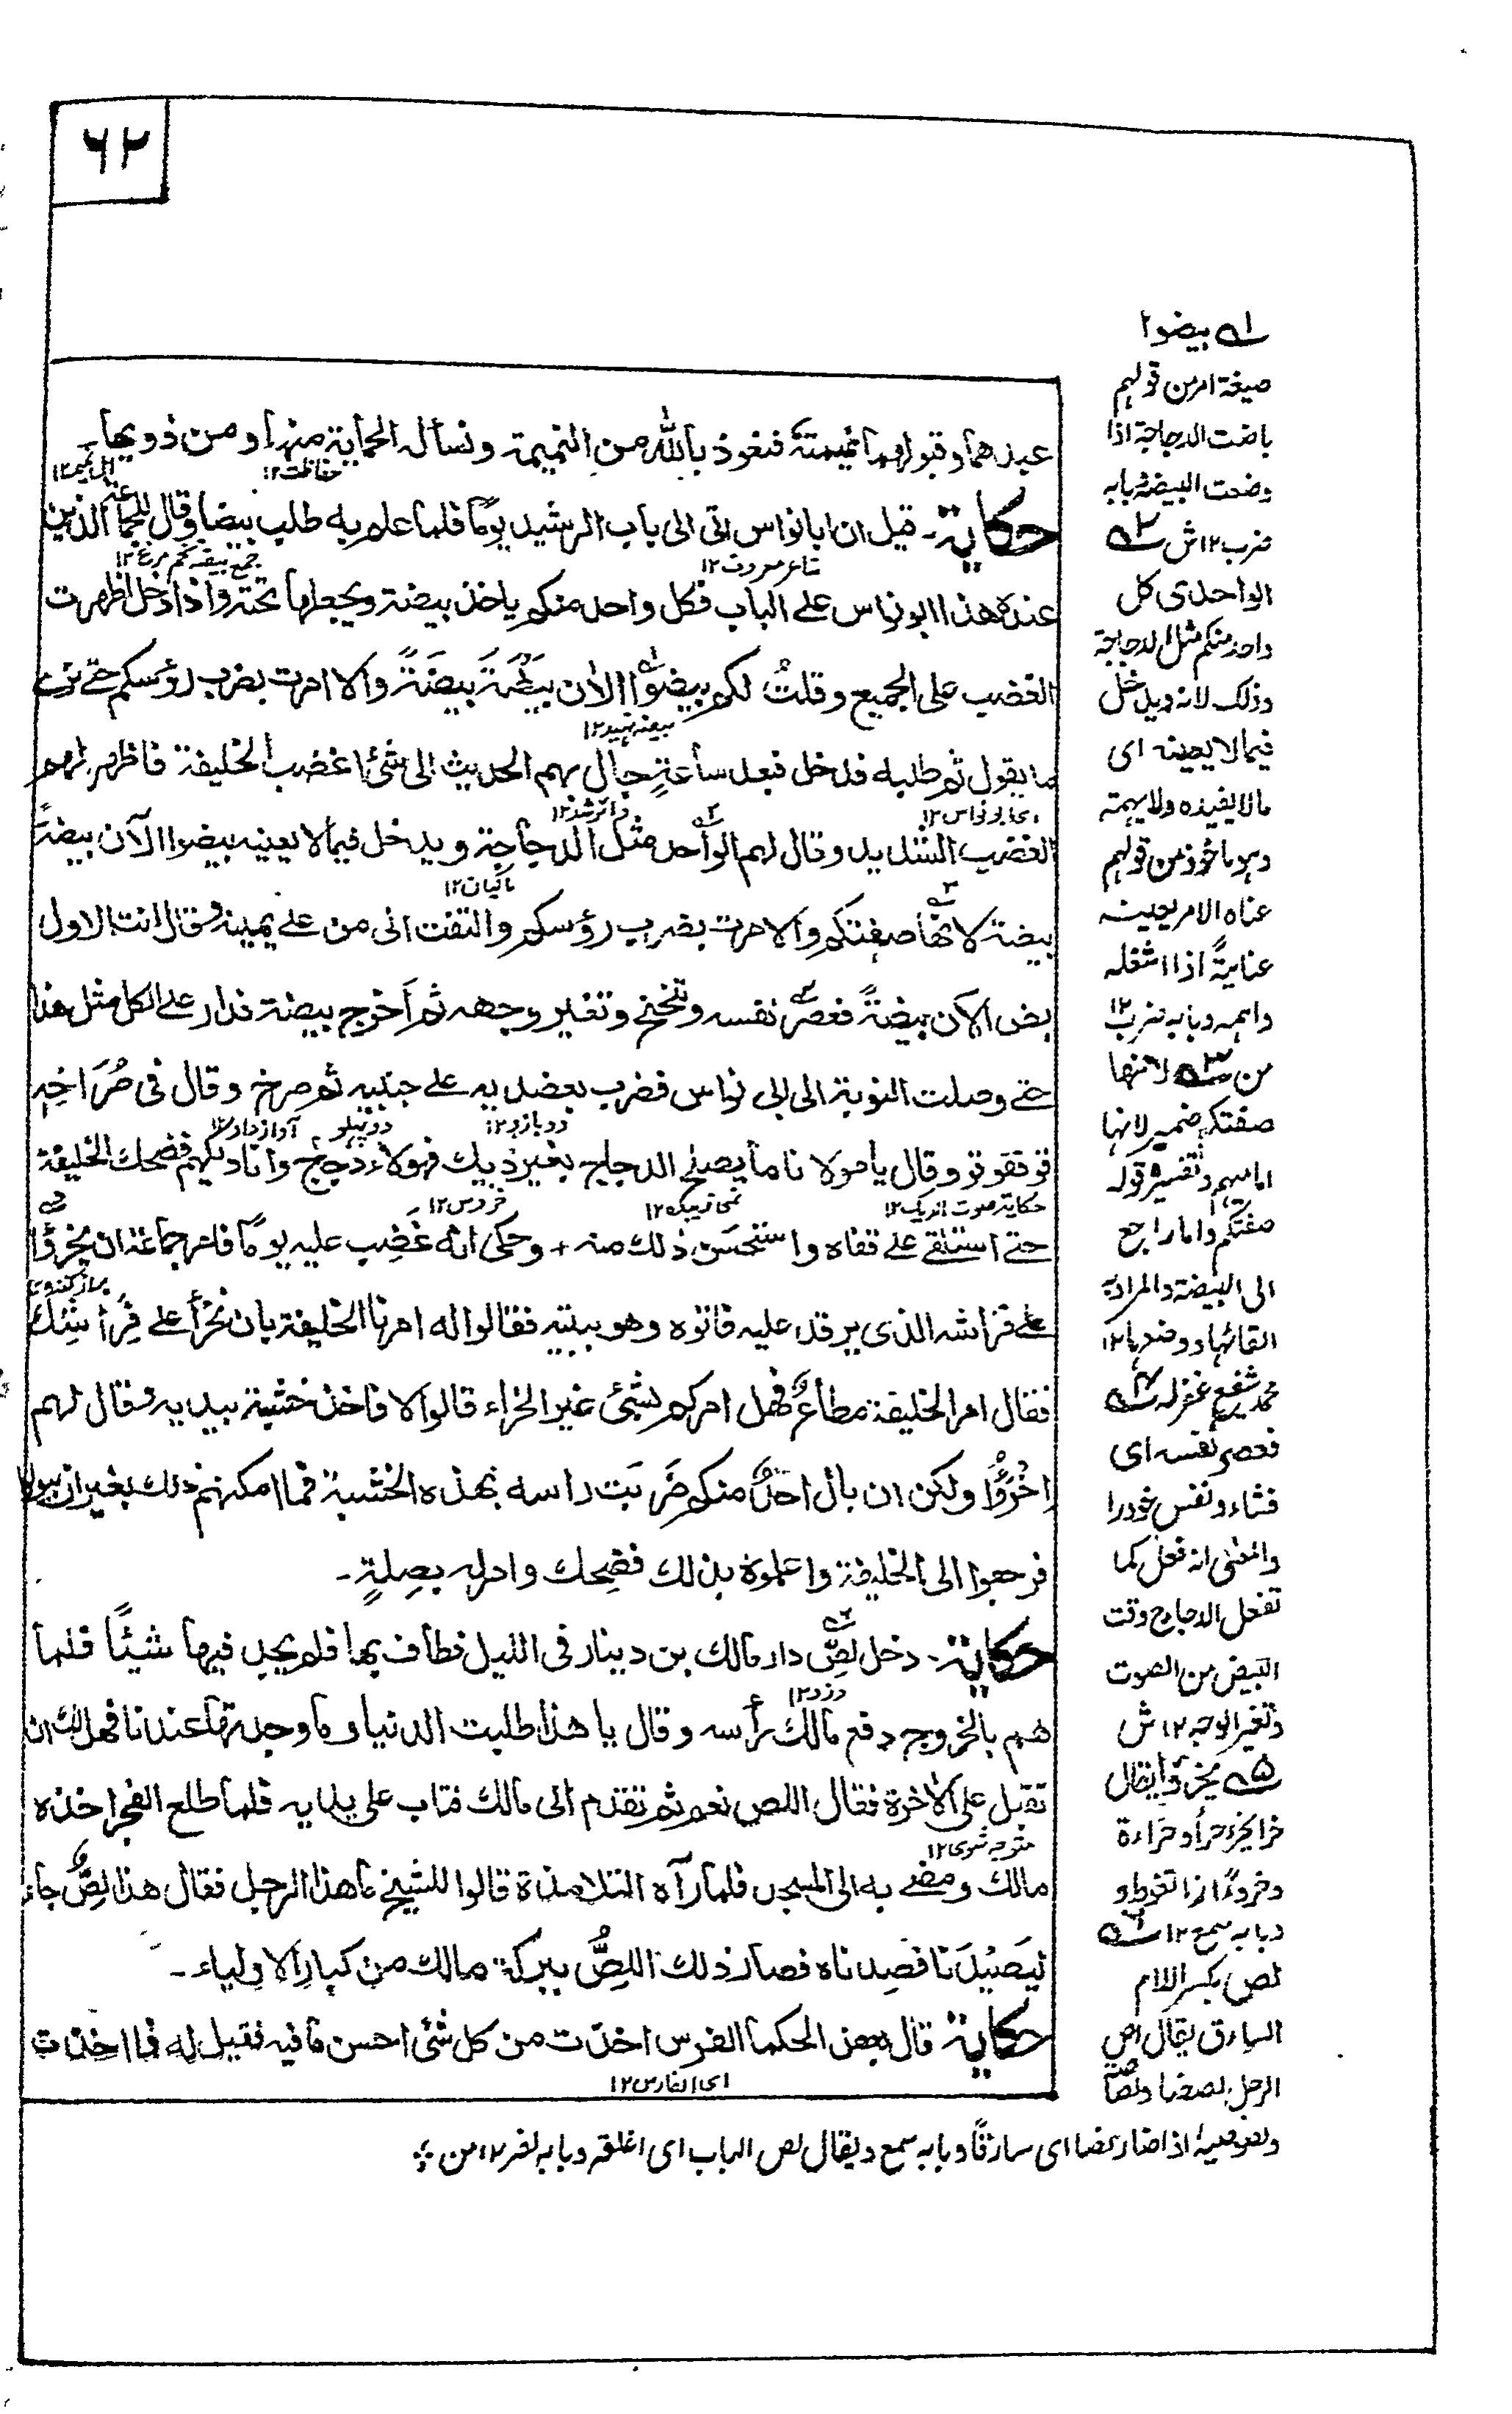 ٦٢
عبدهما وقبولهما نميمتة فنعوذ بالله من النميمة ونسأل الحماية منها ومن ذويها۔
حفاظت١٢
حكاية۔ قيل ان ابا نواس اتى الى باب الرشيد يومًا فلما علم به طلب بيضا وقال للجماعة الذين
شاعر معروف١٢ جمع بيضة تخم مرغ١٢
عنده هذا ابو نواس على الباب فكل واحد منكم ياخذ بيضة ويجعلها تحته واذا دخل اظهرت
الغضب على الجميع وقلتُ لكم بيضوا الاٰن بَيْضَةً بيضَةً والا امرت بضرب رؤسكم حتى نرى
بيضه نهيد١٢
ما يقول ثم طلبه فدخل فبعد ساعةٍ جال بهم الحديث الى شئ اغضب الخليفة فاظهر لهم
اى ابو نواس١٢
الغضب الشديد وقال لهم الواحد مثل الدجاجة ويدخل فيما لا يعنيه بيضوا الآن بيضةً
ماكيان١٢
بيضة لانها صفتكم والا امرت بضرب رؤسكم والتفت الى من على يمينه وقال انت الاول
بض الآن بيضةً فعصر نفسه وتنحنح وتغير وجهه ثم اَخرج بيضة فدار على الكل مثل هذا
حتى وصلت النوبة الى ابى نواس فضرب بعضديه على جنبيه ثم صرخ وقال فى صُرَاخِه
دو بازو١٢ دو پہلو آواز داد١٢
قوققوقو وقال يا مولانا ما يصلح الدجاج بغير ديك فهولاء دجاج وانا ديكهم فضحك الخليفة
حكاية صوت الديك١٢ خروس١٢
حتى استلقى على قفاه واستحسن ذلك منه + وحكى انه غضِب عليه يومًا فامر جماعة ان يخرؤا
على فراشه الذى يرقد عليه فاتوه وهو ببيته فقالوا له امرنا الخليفة بان نخرأ على فِرَاشِك
فقال امر الخليفة مطاعٌ فهل امركم بشئ غير الخراء قالوا لا فاخذ خشبة بيديه وقال لهم
اِخْرَؤُا ولكن ان بال احدٌ منكم ضَرَبت راسه بهذه الخشبة فما امكنهم ذلك بغير ان يبولوا
فرجعوا الى الخليفة واعلموه بذلك فضحك وامر له بصِلةٍ۔
حكاية۔ دخل لصٌّ دار مالك بن دينار فى الليل فطاف بها فلم يجد فيها شيئًا فلما
دزد١٢
هم بالخروج رفع مالك رأسه وقال يا هذا طلبت الدنيا وما وجدتها عندنا فهل لك ان
تقبل على الآخرة فقال اللص نعم ثم تقدم الى مالك فتاب على يديه فلما طلع الفجر اخذه
متوجه شوى١٢
مالك ومضى به الى المسجد فلما رآه التلامذة قالوا للشيخ ما هذا الرجل فقال هذا لصٌّ جاء
ليَصيْدَنا فصِدناه فصار ذلك اللصُّ ببركة مالك من كبار الاولياء۔
حكاية قال بعض الحكما الفرس اخذت من كل شئ احسن ما فيه فقيل له فما اخذت
اى الفارس١٢
١؎ بيضوا
صيغة امر من قولهم
باضت الدجاجة اذا
وضعت البيضة وبابه
ضرب١٢ش ٢؎
الواحد اى كل
واحد منكم مثل الدجاجة
وذلك لانه ويدخل
فيما لا يعينه اى
مالا يفيده ولا يهمه
وهو ماخوذ من قولهم
عناه الامر يعينه
عنايةً اذا اشغله
واهمه وبابه ضرب١٢
من ٣؎ لانها
صفتكم ضمير لانها
اما مبهم وتفسيره قوله
صفتكم واما راجع
الى البيضة والمراد به
القائها ووضعها١٢
محمد شفيع غفر له ٤؎
فعصر نفسه اى
فشاء ونفس خود را
والمعنى انه فعل كما
تفعل الدجاج وقت
البيض من الصوت
وتغير الوجه١٢ش
٥؎ يخرؤا يقال
خرا يخرء خرأ وخراءة
وخروءًا اذا تغوط و
وبابه سمع١٢ ٦؎
لص بكسر اللام
السارق يقال لص
الرجل لصصا ولصاصة
ولصوصية اذا صار لصا اى سارقًا وبابه سمع ويقال لص الباب اى اغلقه وبابه نصر١٢ من